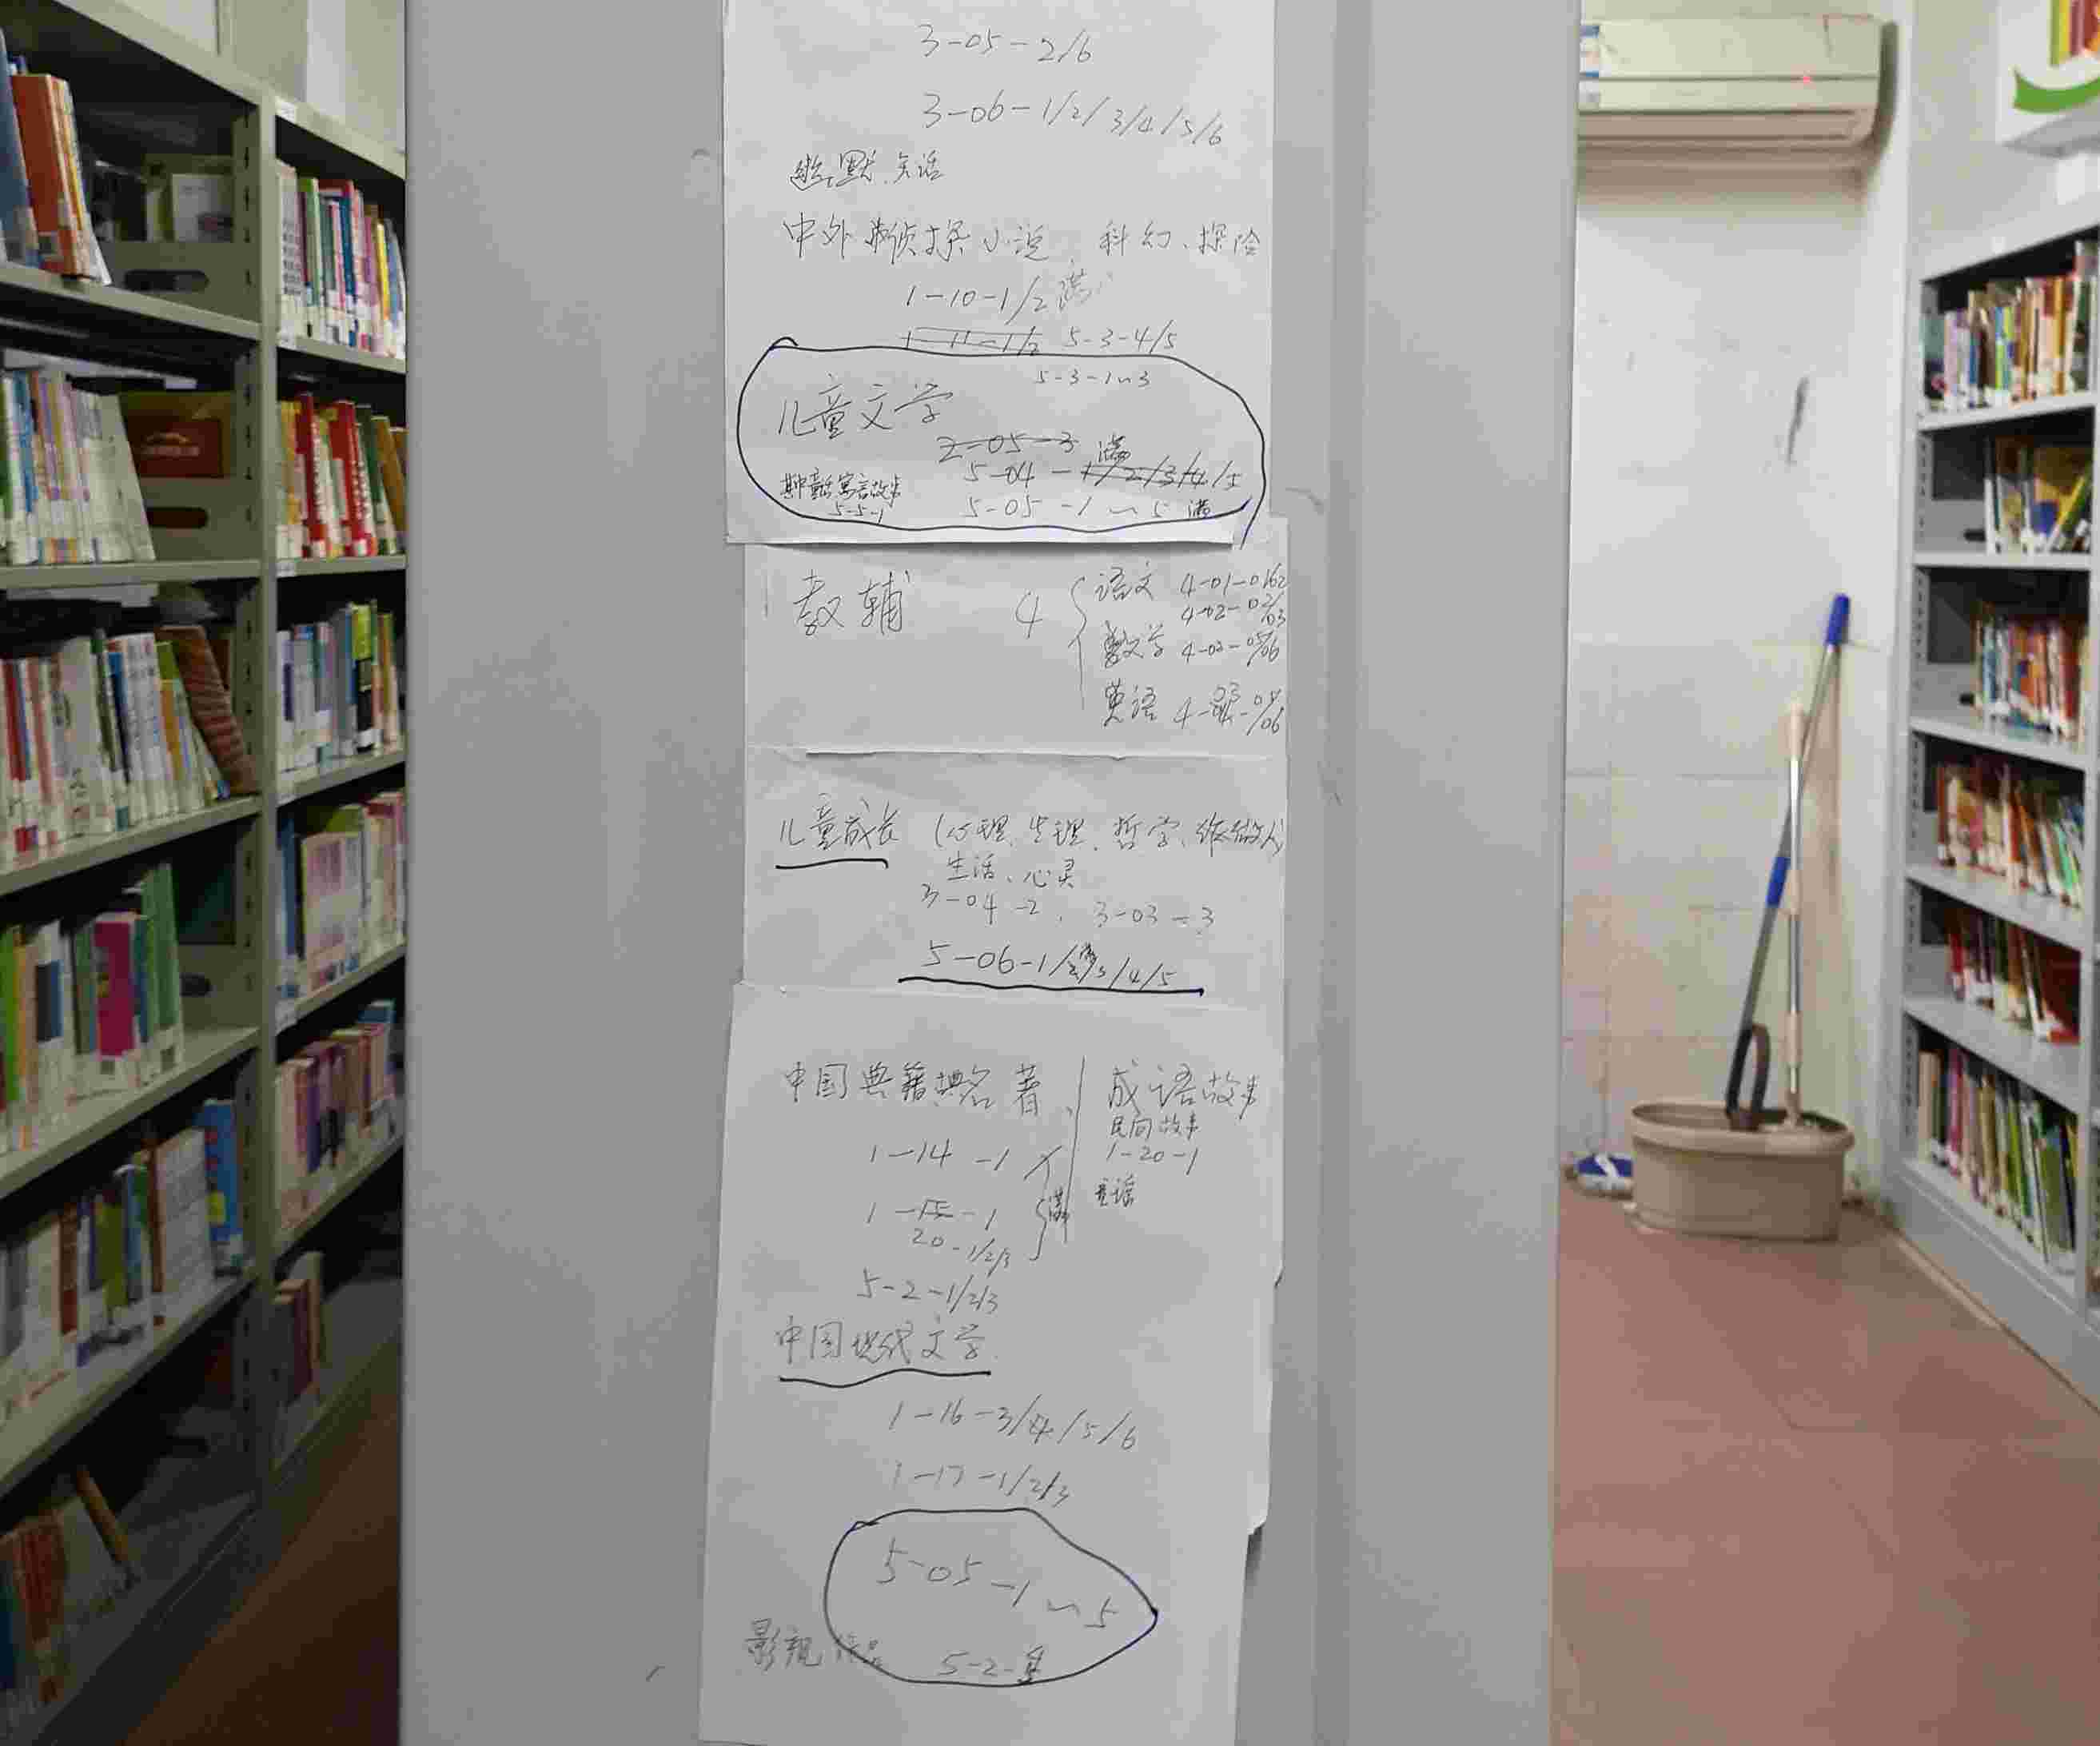 3-05-2/6
3-06-1/2/3/4/5/6
幽默、笑话
中外侦探小说、科幻、探险
1-10-1/2 满
1-11-1/2 5-3-4/5
5-3-1~3
儿童文学
2-05-3 满
5-04-1/2/3/4/5
童话寓言故事
5-05-1~5 满
5-5-1
教辅 4
语文 4-01-01/02
4-02-02/03
数学 4-02-05/06
英语 4-
儿童成长 (心理、生理、哲学、做人)
生活、心灵
3-04-2, 3-03-3
5-06-1/2/3/4/5
中国典籍名著、
1-14-1
1-15-1
20-1/2/3
满
5-2-1/2/3
成语故事
民间故事
1-20-1
童谣
中国现代文学
1-16-3/4/5/6
1-17-1/2/3
5-05-1~5
影视作品 5-2-